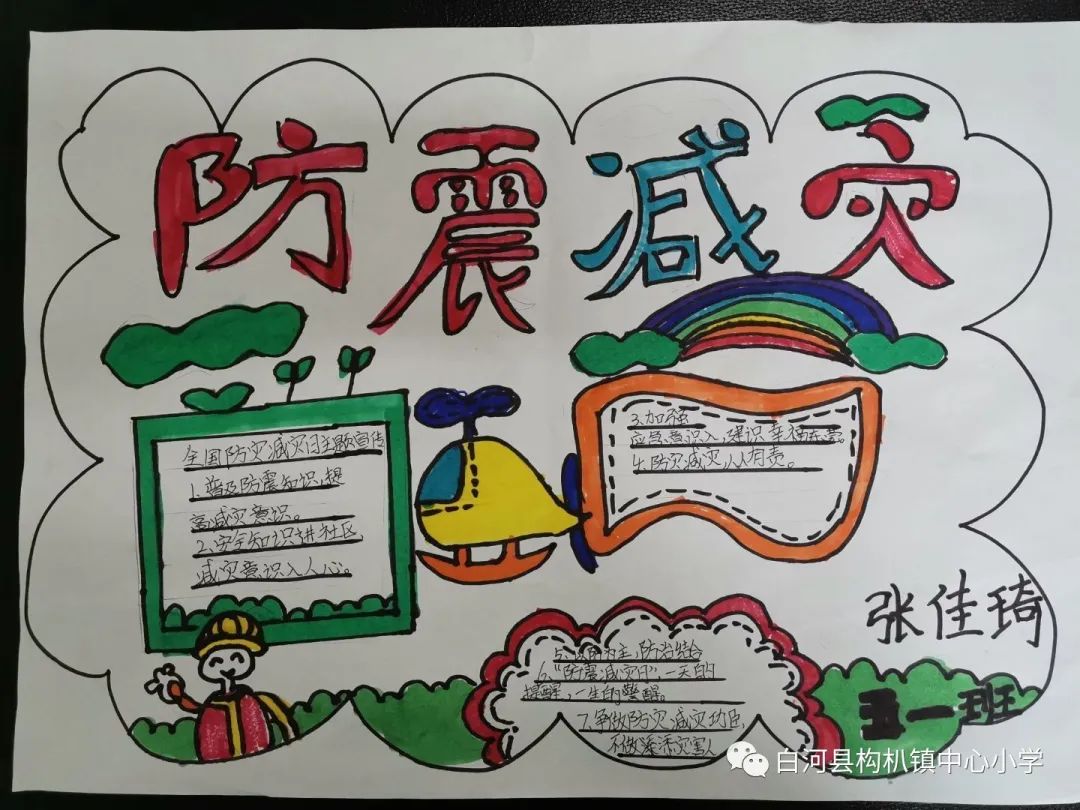 防震减灾
全国防灾减灾日主题宣传
1.普及防震知识,提
高减灾意识。
2.安全知识进社区,
减灾意识入人心。
3.加强
应急意识入,建识幸福
4.防灾减灾,人人有责。
5.以防为主,防治结合
6."防震减灾日",一天的
提醒,一生的警醒。
7.争做防灾减灾功臣,
不做 灾害人
张佳琦
五一班
白河县构朳镇中心小学